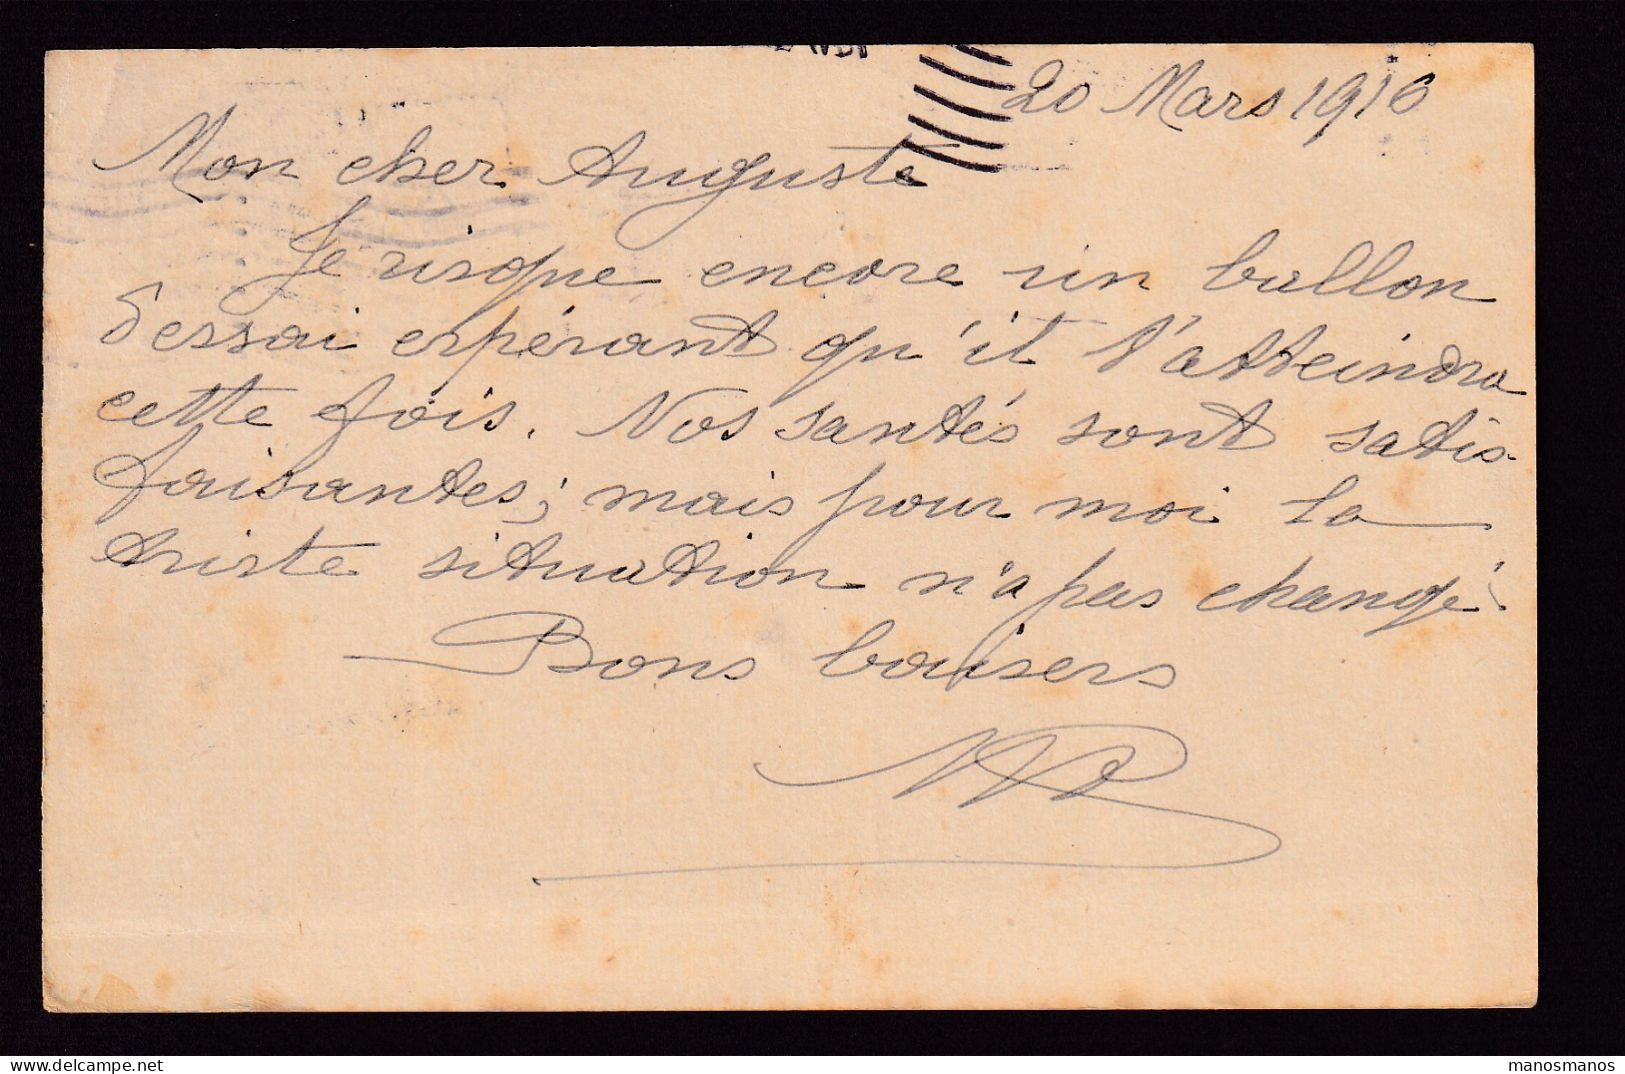 20 Mars 1916
Mon cher Auguste
Je risque encore un ballon
d'essai espérant qu'il t'atteindra
cette fois. Nos santés sont satis-
faisantes; mais pour moi la
triste situation n'a pas changé.
Bons baisers
manosmanos